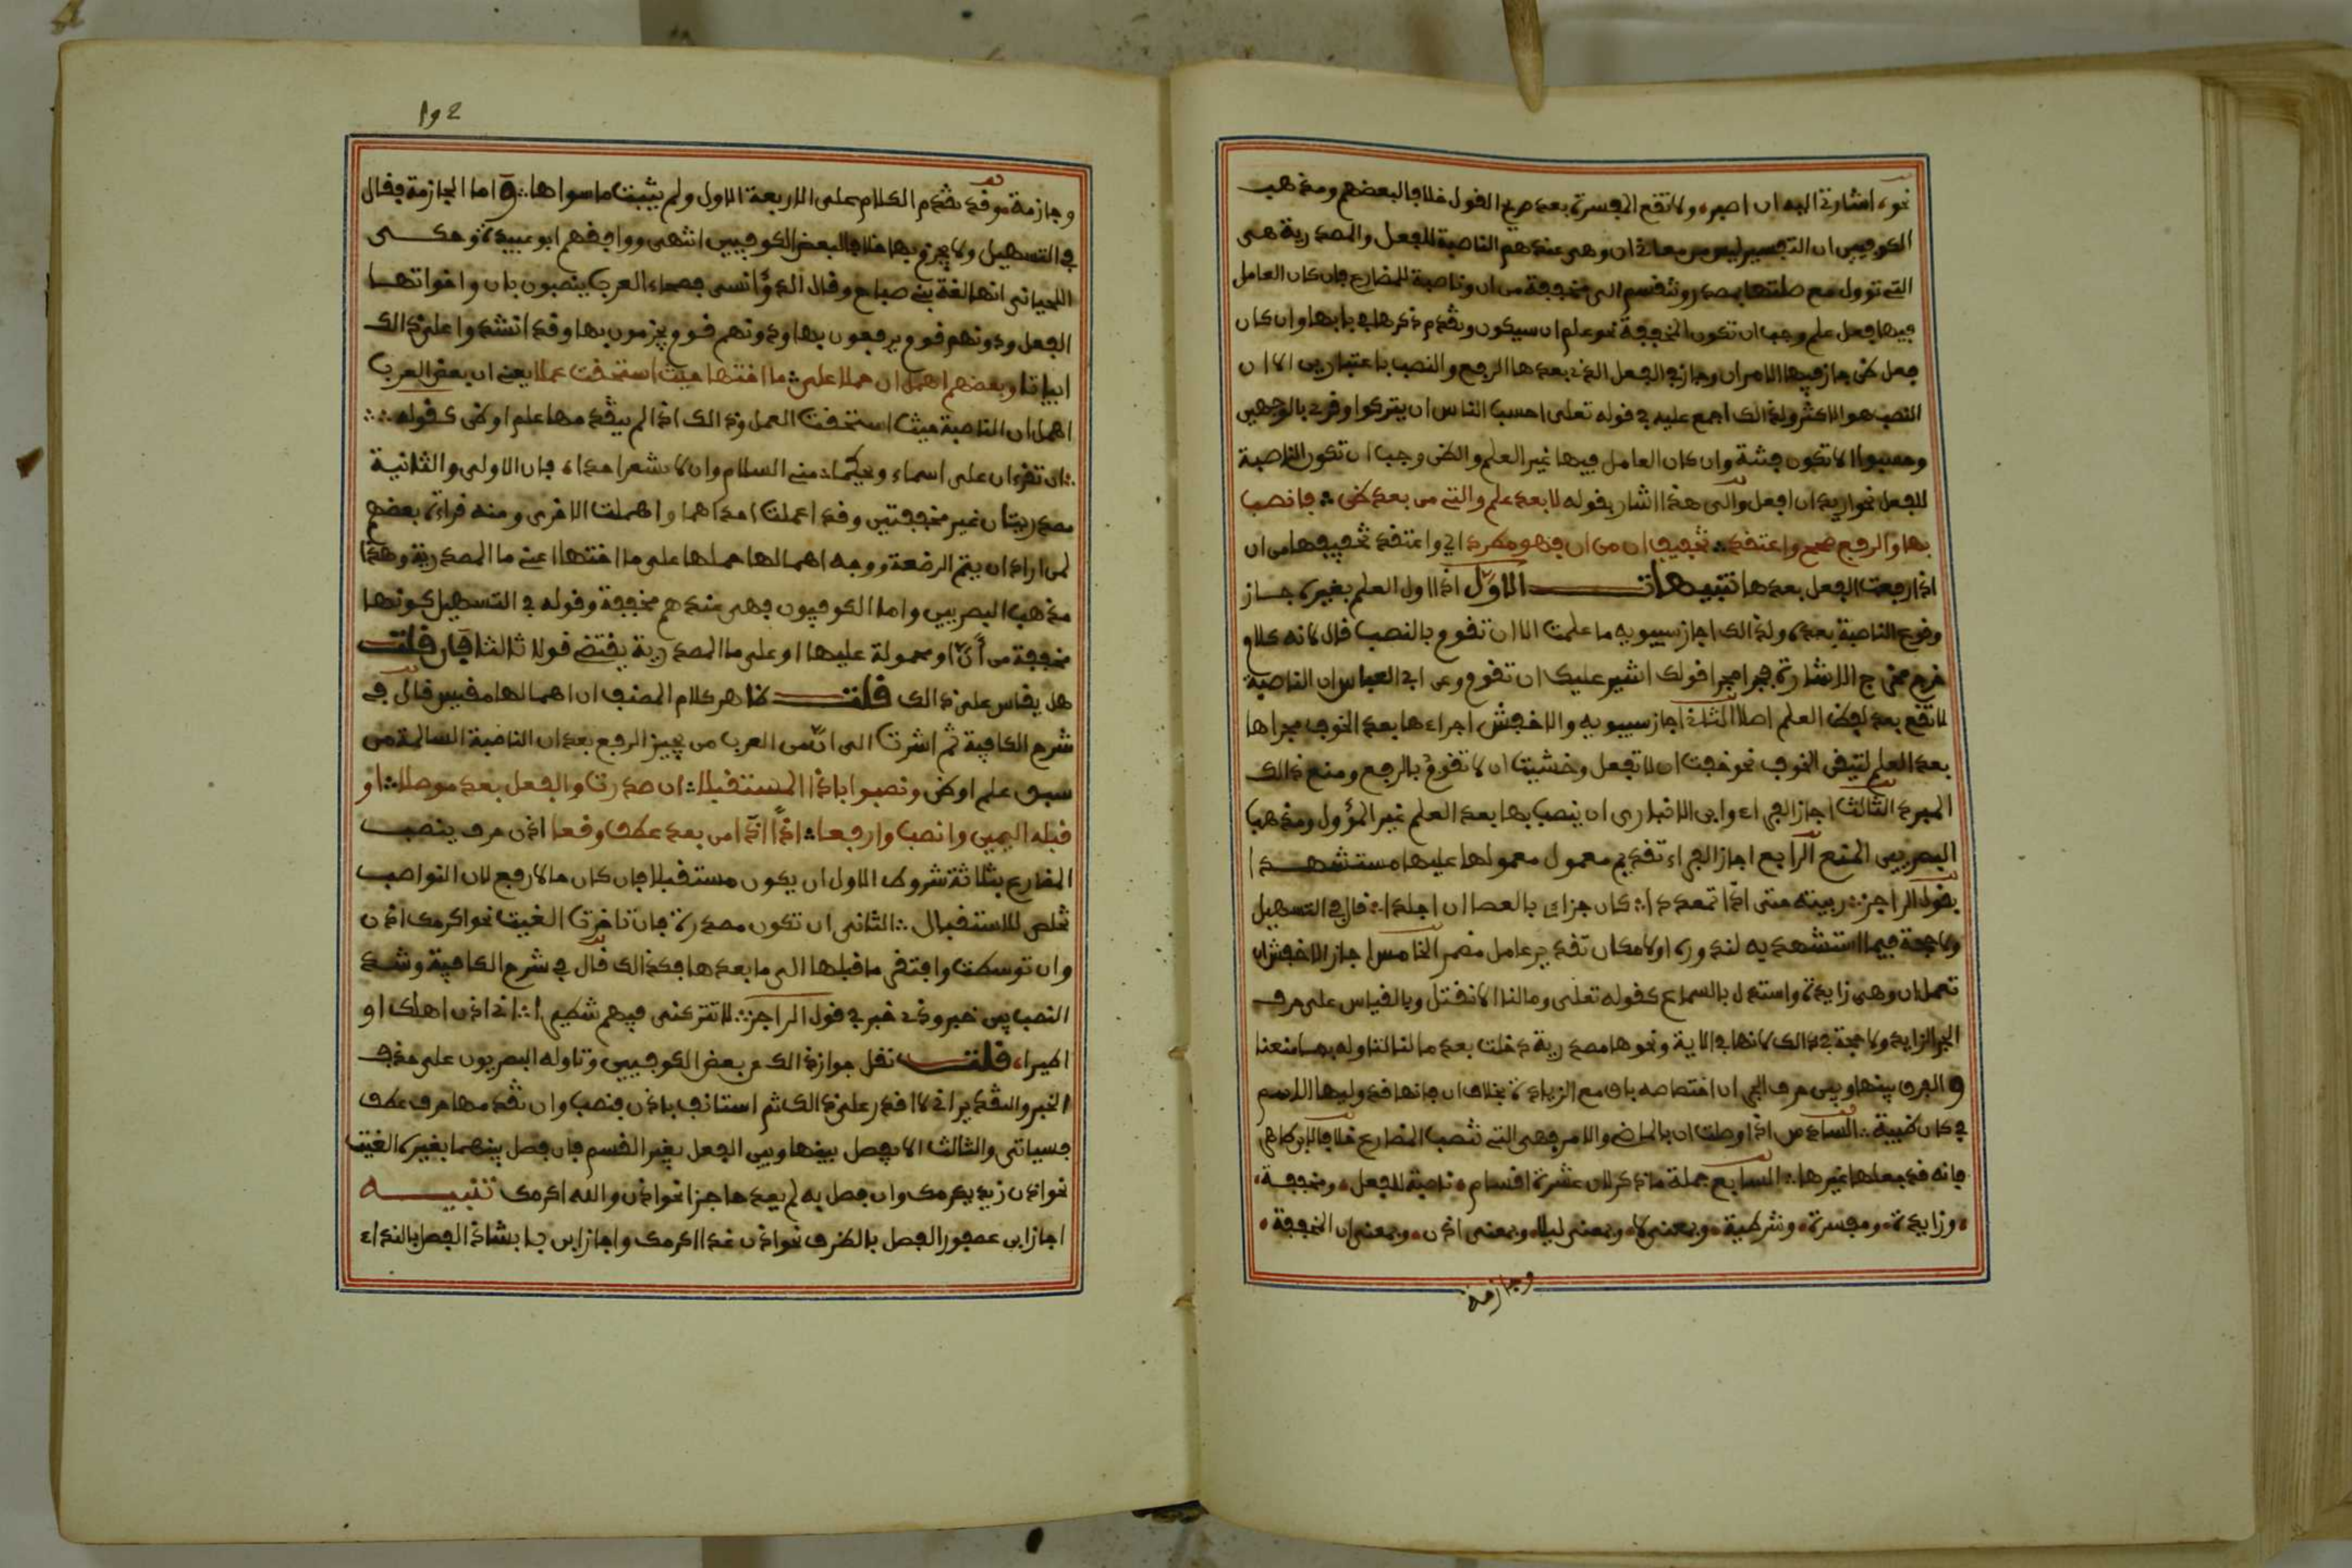 نحو اشارة اليه ان اصبر ولا تقع المفسرة بعد صريح القول خلافا لبعضهم ومذهب
الكوفيين ان التفسير ليس من معاني ان وهي عندهم الناصبة للفعل والمصدرية هي
التي تؤول مع صلتها بمصدر وتنقسم الى مخففة من ان وناصبة للمضارع فان كان العامل
فيها فعل علم وجب ان تكون المخففة نحو علم ان سيكون وتقدم ذكرها في بابها وان كان
فعل ظن جاز فيها الامران وجاز في الفعل الذي بعدها الرفع والنصب باعتبارين الا ان
النصب هو الاكثر ولذالك اجمع عليه في قوله تعلى احسب الناس ان يتركوا وقرئ بالوجهين
وحسبوا الا تكون فتنة وان كان العامل فيها غير العلم والظن وجب ان تكون الناصبة
للفعل نحو اريد ان افعل والى هذا اشار بقوله لا بعد علم والتي من بعد ظن ∴ فانصب
بها والرفع صحح واعتقد ∴ تخفيفها من ان فهو مطرد اي واعتقد تخفيفها من ان
اذا رفعت الفعل بعدها تنبيهات الاول اذا اول العلم بغيره جاز
وقوع الناصبة بعده ولذالك اجاز سيبويه ما علمت الا ان تقوم بالنصب قال لانه كلام
خرج مخرج الاشارة فجرا مجرا قولك اشير عليك ان تقوم وعن ابي العباس ان الناصبة
لا تقع بعد لفظ العلم اصلا الثاني اجاز سيبويه والاخفش اجراءها بعد الخوف مجراها
بعد العلم لتيقن الخوف نحو خفت ان لا تفعل وخشيت ان لا تقوم بالرفع ومنع ذالك
المبرد الثالث اجاز الفراء وابن الانباري ان ينصب بها بعد العلم غير المؤول ومذهب
البصريين المنع الرابع اجاز الفراء تقديم معمول معمولها عليها مستشهدا
بقول الراجز ∴ ربيته حتى اذا تمعددا ∴ كان جزاي بالعصا ان اجلدا ∴ قال في التسهيل
ولا حجة فيما استشهد به لندوره او لامكان تقدير عامل مضمر الخامس اجاز الاخفش ان
تعمل ان وهي زايدة واستدل بالسماع كقوله تعلى وما لنا الا نقتل وبالقياس على حرف
الجر الزايد ولا حجة في ذالك لانها في الاية ونحوها مصدرية دخلت بعد ما لنا لتاوله بما منعنا
والفرق بينها وبين حرف الجر ان اختصاصه باق مع الزيادة بخلاف ان فانها قد وليها الاسم
في كان ظبية ∴ السادس اذا وصلت ان بالماضي والامر فهي التي تنصب المضارع خلافا لابن طاهر
فانه قد جعلها غيرها ∴ السابع جملة ما ذكر لان عشرة اقسام ناصبة للفعل ومخففة
وزايدة ومفسرة وشرطية وبمعنى لا وبمعنى ليلا وبمعنى اذ وبمعنى ان المخففة
وجازمة
192
وجازمة وقد تقدم الكلام على الاربعة الاول ولم يثبت ما سواها ∴ واما الجازمة فقال
في التسهيل ولا يجزم بها خلافا لبعض الكوفيين انتهى ووافقهم ابو عبيدة وحكى
اللحياني انها لغة بني صباح وقال الرؤاسي فصحاء العرب ينصبون بان واخواتها
الفعل ودونهم قوم يرفعون بها ودونهم قوم يجزمون بها وقد انشدوا على ذالك
ابياتا وبعضهم اهمل ان حملا على ∴ ما اختها حيث استحقت عملا يعني ان بعض العرب
اهمل ان الناصبة حيث استحقت العمل وذالك اذا لم يتقدمها علم او ظن كقوله ∴
∴ ان تقرءان على اسماء ويحكما ∴ مني السلام وان لا تشعرا احدا ∴ فان الاولى والثانية
مصدريتان غير مخففتين وقد اعملت احداهما واهملت الاخرى ومنه قراءة بعضهم
لمن اراد ان يتم الرضعة ووجه اهمالها حملها على ما اختها اعني ما المصدرية وهذا
مذهب البصريين واما الكوفيون فهي عندهم مخففة وقوله في التسهيل كونها
مخففة من أنّ او محمولة عليها او على ما المصدرية يقتضي قولا ثالثا فان قلت
هل يقاس على ذالك قلت ظاهر كلام المصنف ان اهمالها مقيس قال في
شرح الكافية ثم اشرت الى ان من العرب من يجيز الرفع بعد ان الناصبة السالمة من
سبق علم او ظن ونصبوا باذا المستقبلا ∴ ان صدرت والفعل بعد موصلا ∴ او
قبله اليمين وانصب وارفعا ∴ اذا اذا من بعد عطف وقعا اذن حرف ينصب
المضارع بثلاثة شروط الاول ان يكون مستقبلا فان كان حالا رفع لان النواصب
تخلص للاستقبال ∴ الثاني ان تكون مصدرة فان تاخرت الغيت نحو اكرمك اذن
وان توسطت وافتقر ما قبلها الى ما بعدها فكذالك قال في شرح الكافية وشذ
النصب بين خبر وذي خبر في قول الراجز ∴ لا تتركني فيهم شطيرا ∴ اني اذن اهلك او
اطيرا ∴ قلت نقل جواز ذالك عن بعض الكوفيين وتاوله البصريون على حذف
الخبر والتقدير اني لا اقدر على ذالك ثم استانف باذن فنصب وان تقدمها حرف عطف
فسياتي والثالث الا يفصل بينها وبين الفعل بغير القسم فان فصل بينهما بغيره الغيت
نحو اذن زيد يكرمك وان فصل به لم يعد حاجزا نحو اذن والله اكرمك تنبيه
اجاز ابن عصفور الفصل بالظرف نحو اذن غدا اكرمك واجاز ابن بابشاذ الفصل بالنداء